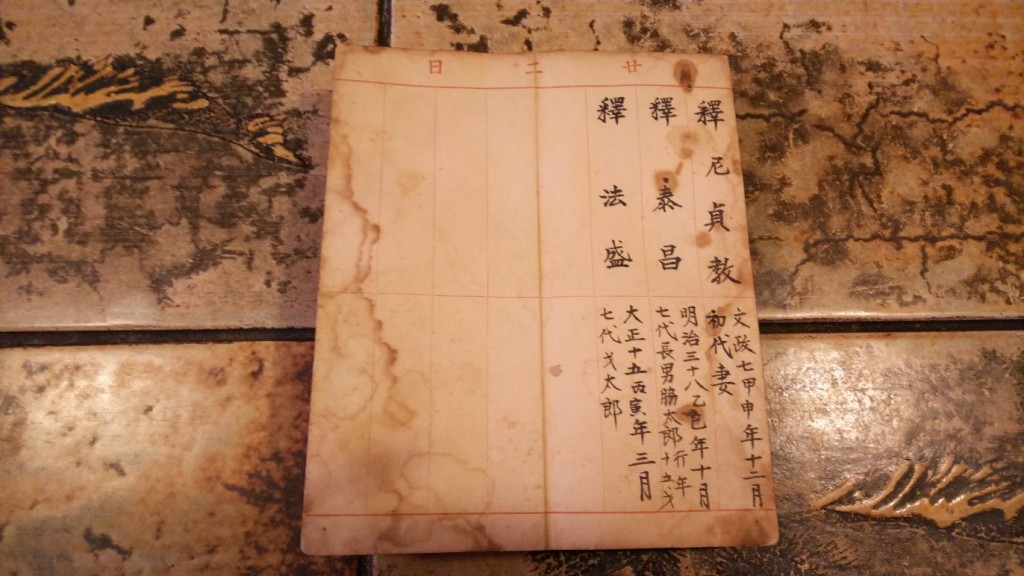 廿二日
釋尼貞教
文政七甲申年十二月
初代妻
釋泰昌
明治三十八乙巳年十月
七代長男脇太郎行年十五戈
釋法盛
大正十五丙寅年三月
七代戈太郎